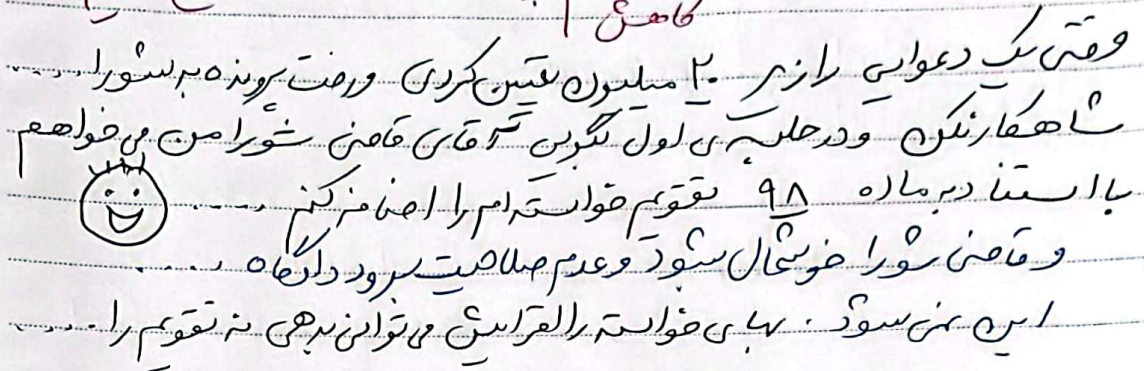 کاهش
وقتی یک دعوایی را زیر ۲۰ میلیون تعیین کردی و رفت پرونده به شورا .....
شاهکار نکن و در جلسه ی اول نگویی آقای قاضی شورا من می خواهم
با استناد به ماده ۹۸ تقویم خواسته ام را اضافه کنم .....
و قاضی شورا خوشحال بشود و عدم صلاحیت برود دادگاه .....
این نمی شود . بهای خواسته را افزایش می توانی بدهی نه تقویم را .....